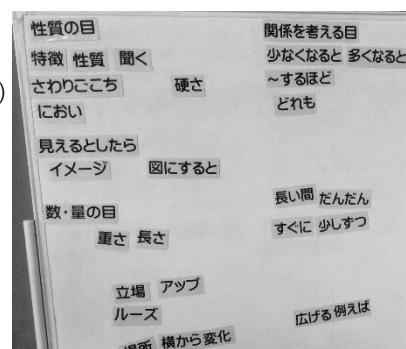 性質の目
特徴 性質 聞く
さわりごこち 硬さ
におい
見えるとしたら
イメージ 図にすると
数・量の目
重さ 長さ
立場 アップ
ルーズ
場所 横から変化
関係を考える目
少なくなると 多くなると
～するほど
どれも
長い間 だんだん
すぐに 少しずつ
広げる 例えば